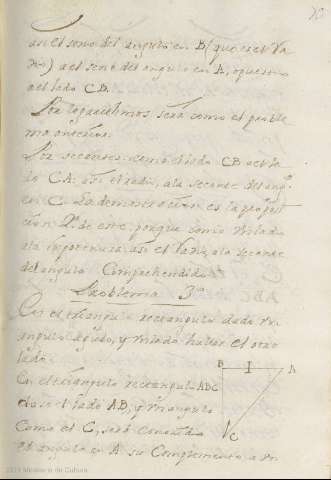 asi el seno del angulo en B (que es el Ra
dio) a el seno del angulo en A, opuesto
a el lado CB.
Por logarithmos sera como el proble
ma antecedte.
Por secantes: como el lado CB a el la
do CA: asi el radio, a la secante del angº
en C. La demostracion es la proposi
cion 2ª de este, porque como un lado
a la hipotenuza: asi el Radio, a la secante
del angulo Comprehendido.
Problema 3º
En el triangulo rectangulo dado un
angulo agudo, y un lado hallar el otro
lado.
En el triangulo rectangulo ABC
dado el lado AB, y un angulo
como el C, sera conocido
el angulo en A su Complemento a un
B I A
C
Ministerio de Cultura